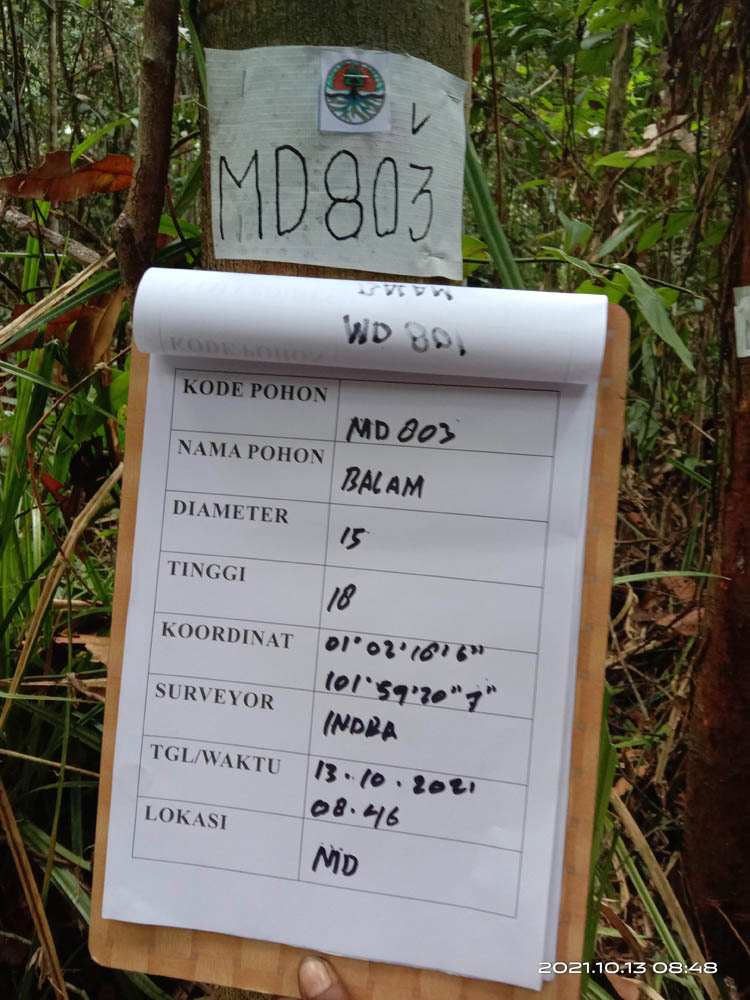 V
MD803
WD 801
KODE POHON
MD 803
NAMA POHON
BALAM
DIAMETER
15
TINGGI
18
KOORDINAT
01°02'16'6"
101°59'20"7"
SURVEYOR
INDRA
TGL/WAKTU
13.10.2021
08.46
LOKASI
MD
2021.10.13 08:48